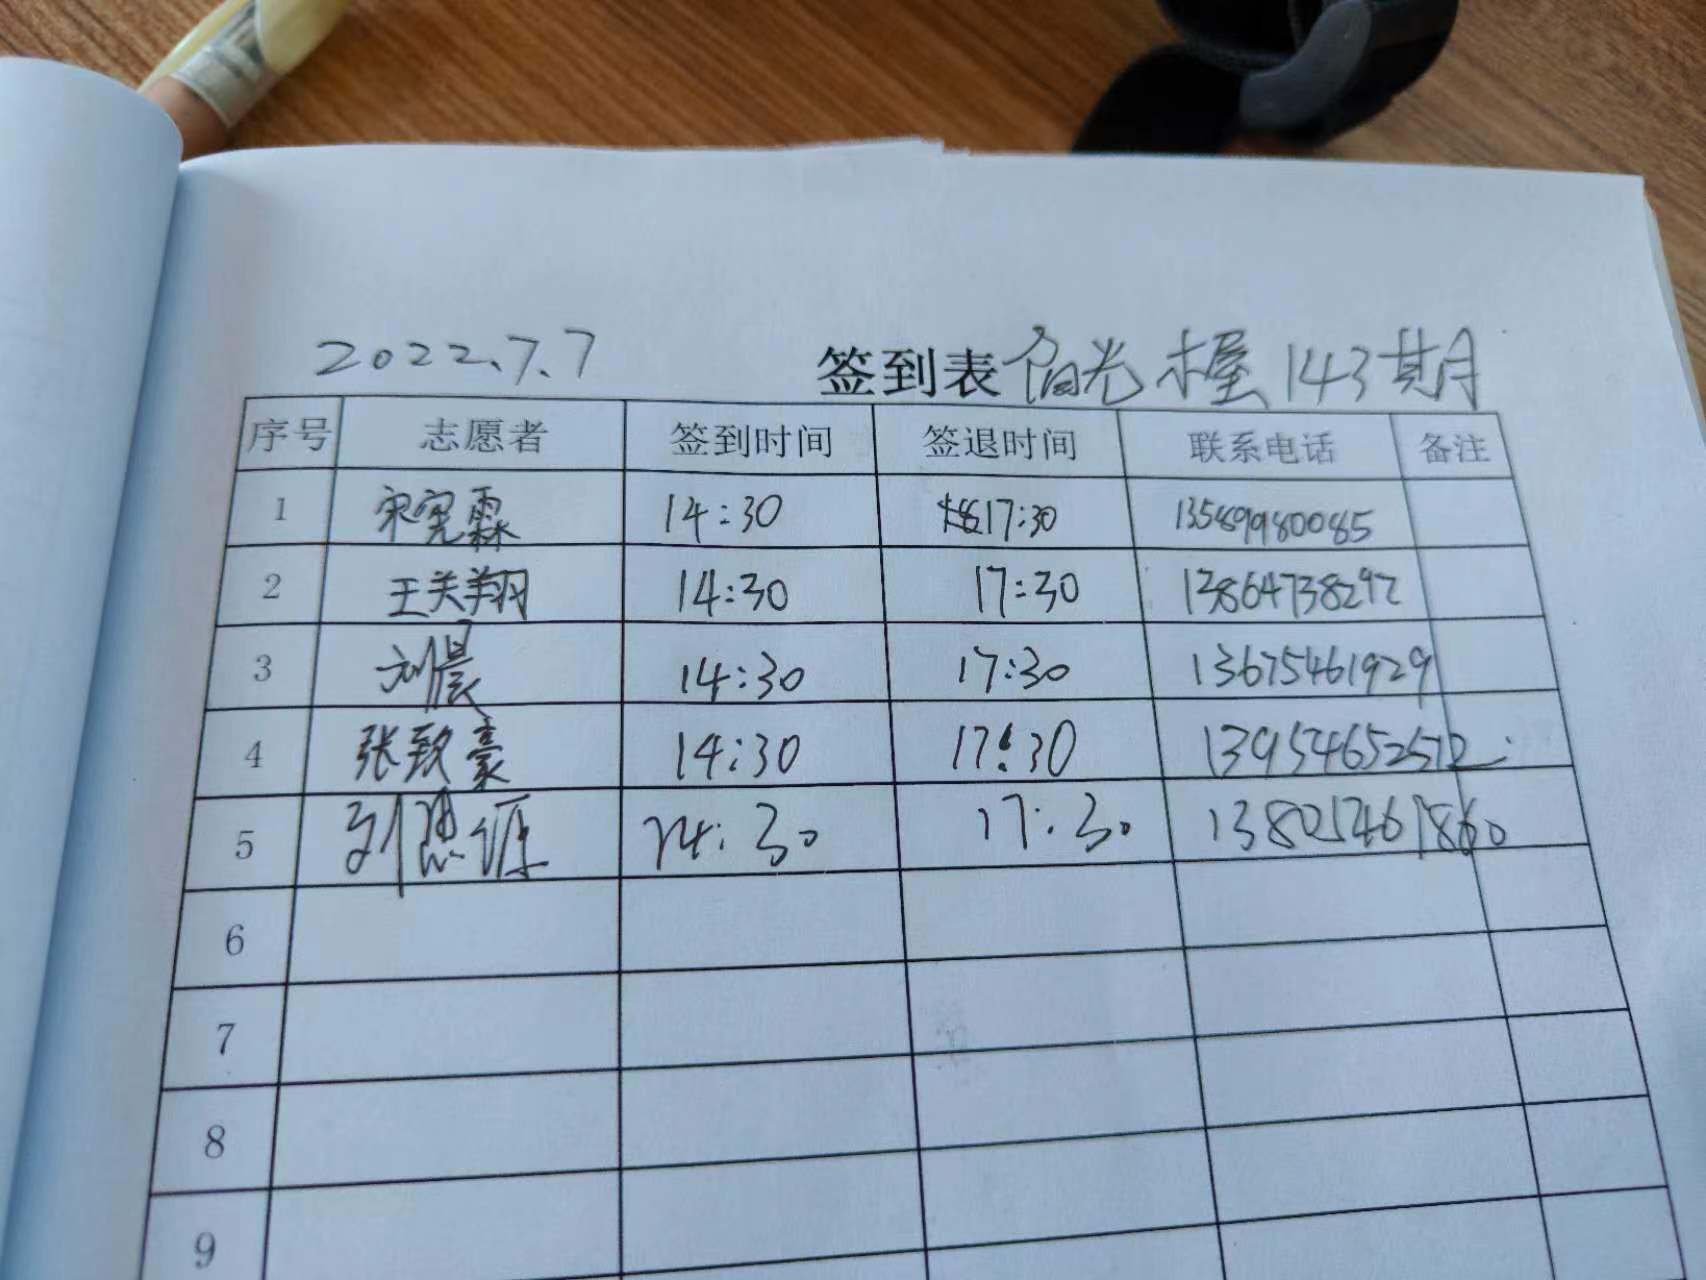 2022.7.7 签到表 阳光木屋143期
序号 志愿者 签到时间 签退时间 联系电话 备注
1 14:30 17:30 13589980085
2 王关翔 14:30 17:30 13864738292
3 刘晨 14:30 17:30 13675461929
4 张致豪 14:30 17:30 13954652572
5 刘恩源 14:30 17:30
6
7
8
9